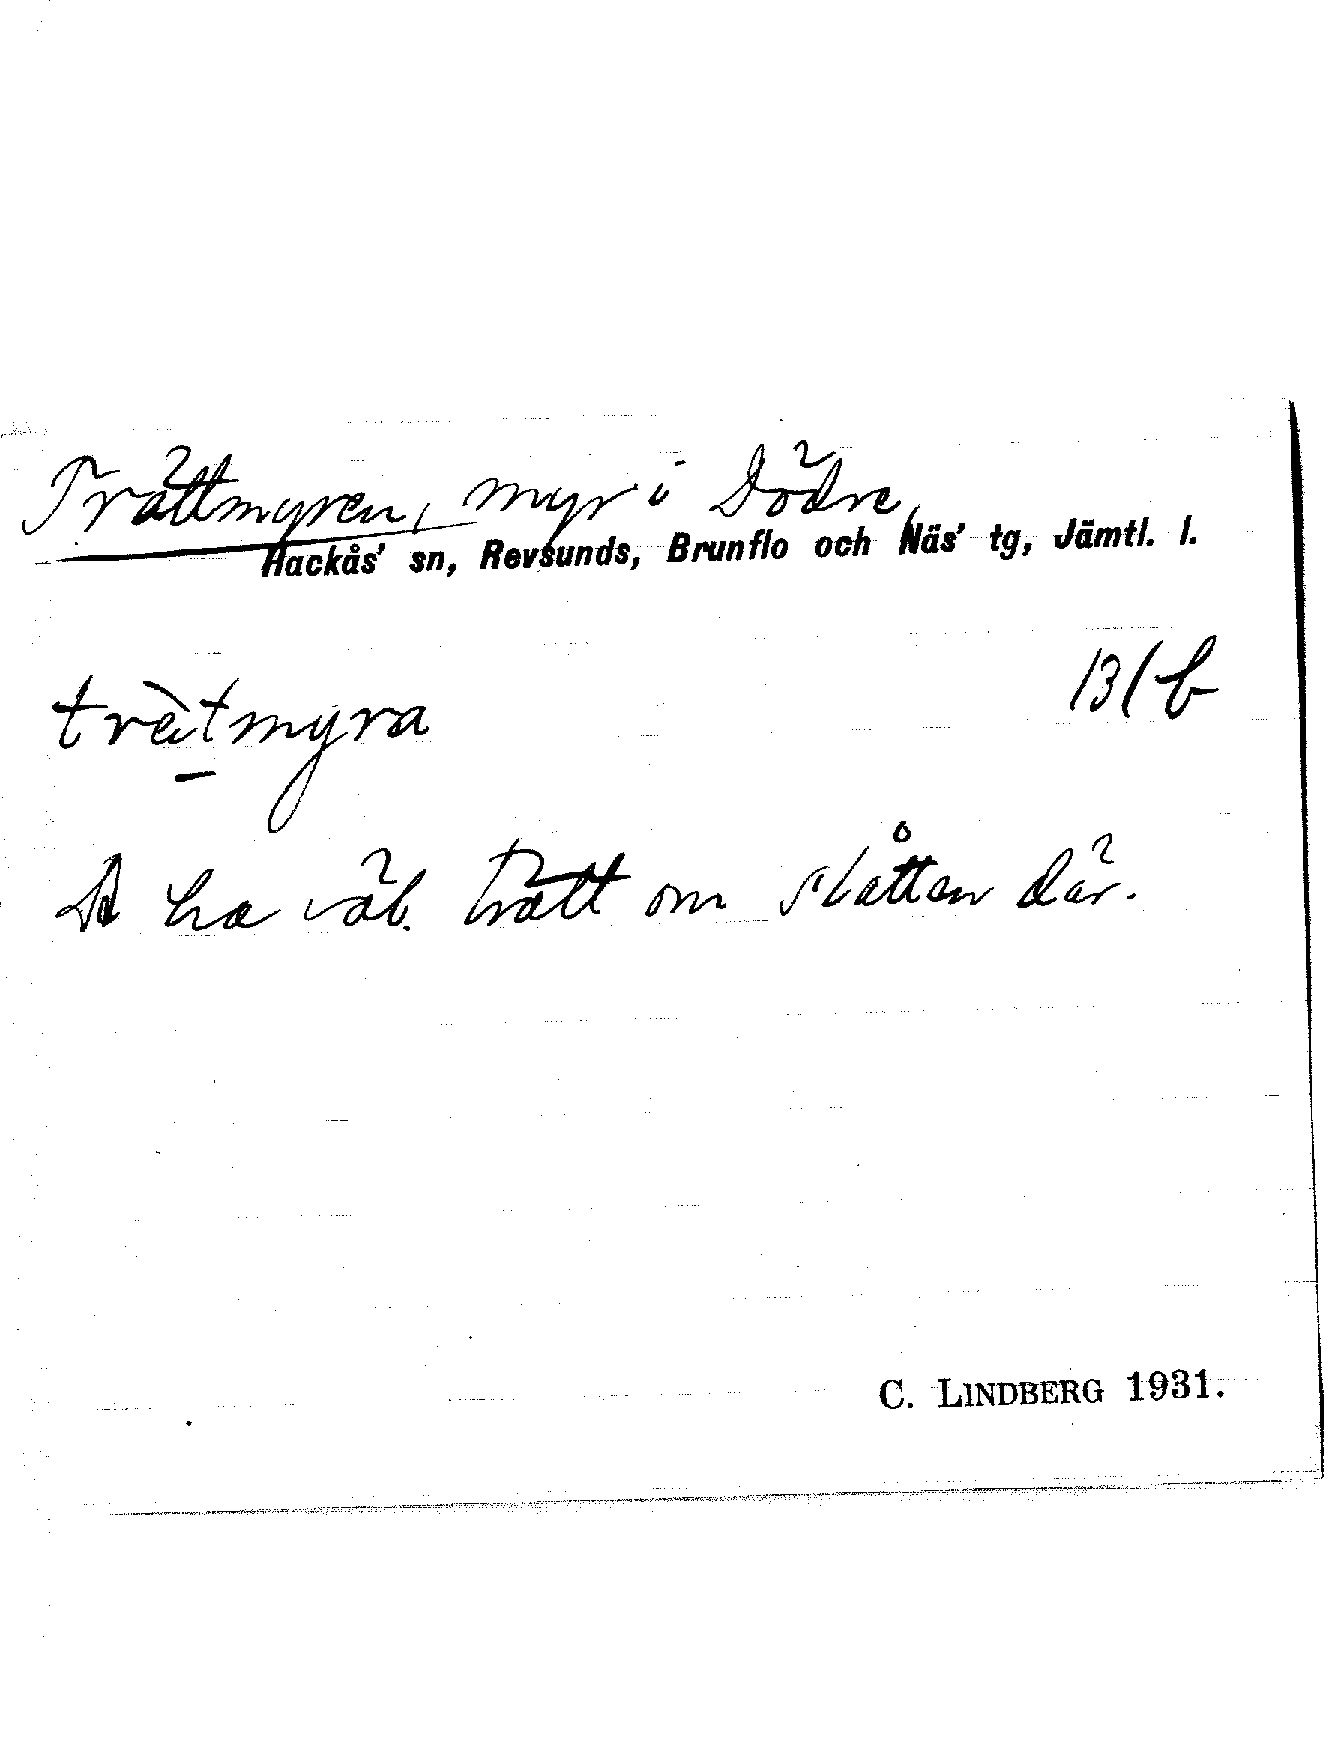 Trättmyren, myr i Dödre,
Hackås' sn, Revsunds, Brunflo och Näs' tg, Jämtl. l.
trètmyra 13/b
ha väl trätt om slåtten där.
C. LINDBERG 1931.